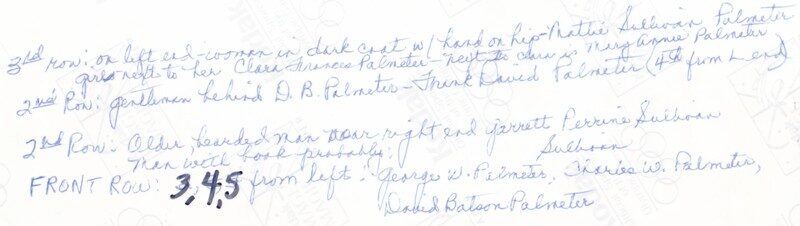 3rd row: on left end - woman in dark coat w/ hand on hip - Mattie Sullivan Palmeter
girls next to her Clara Frances Palmeter - next to Clara is Mary Annie Palmeter
2nd Row: gentleman behind D. B. Palmeter - Frank David Palmeter (4th from L end)
2nd Row: Older, bearded man near right end Garrett Perrine Sullivan
man with book probably: Sullivan
FRONT ROW: 3,4,5 from left: George W. Palmeter, Charles W. Palmeter,
David Batson Palmeter